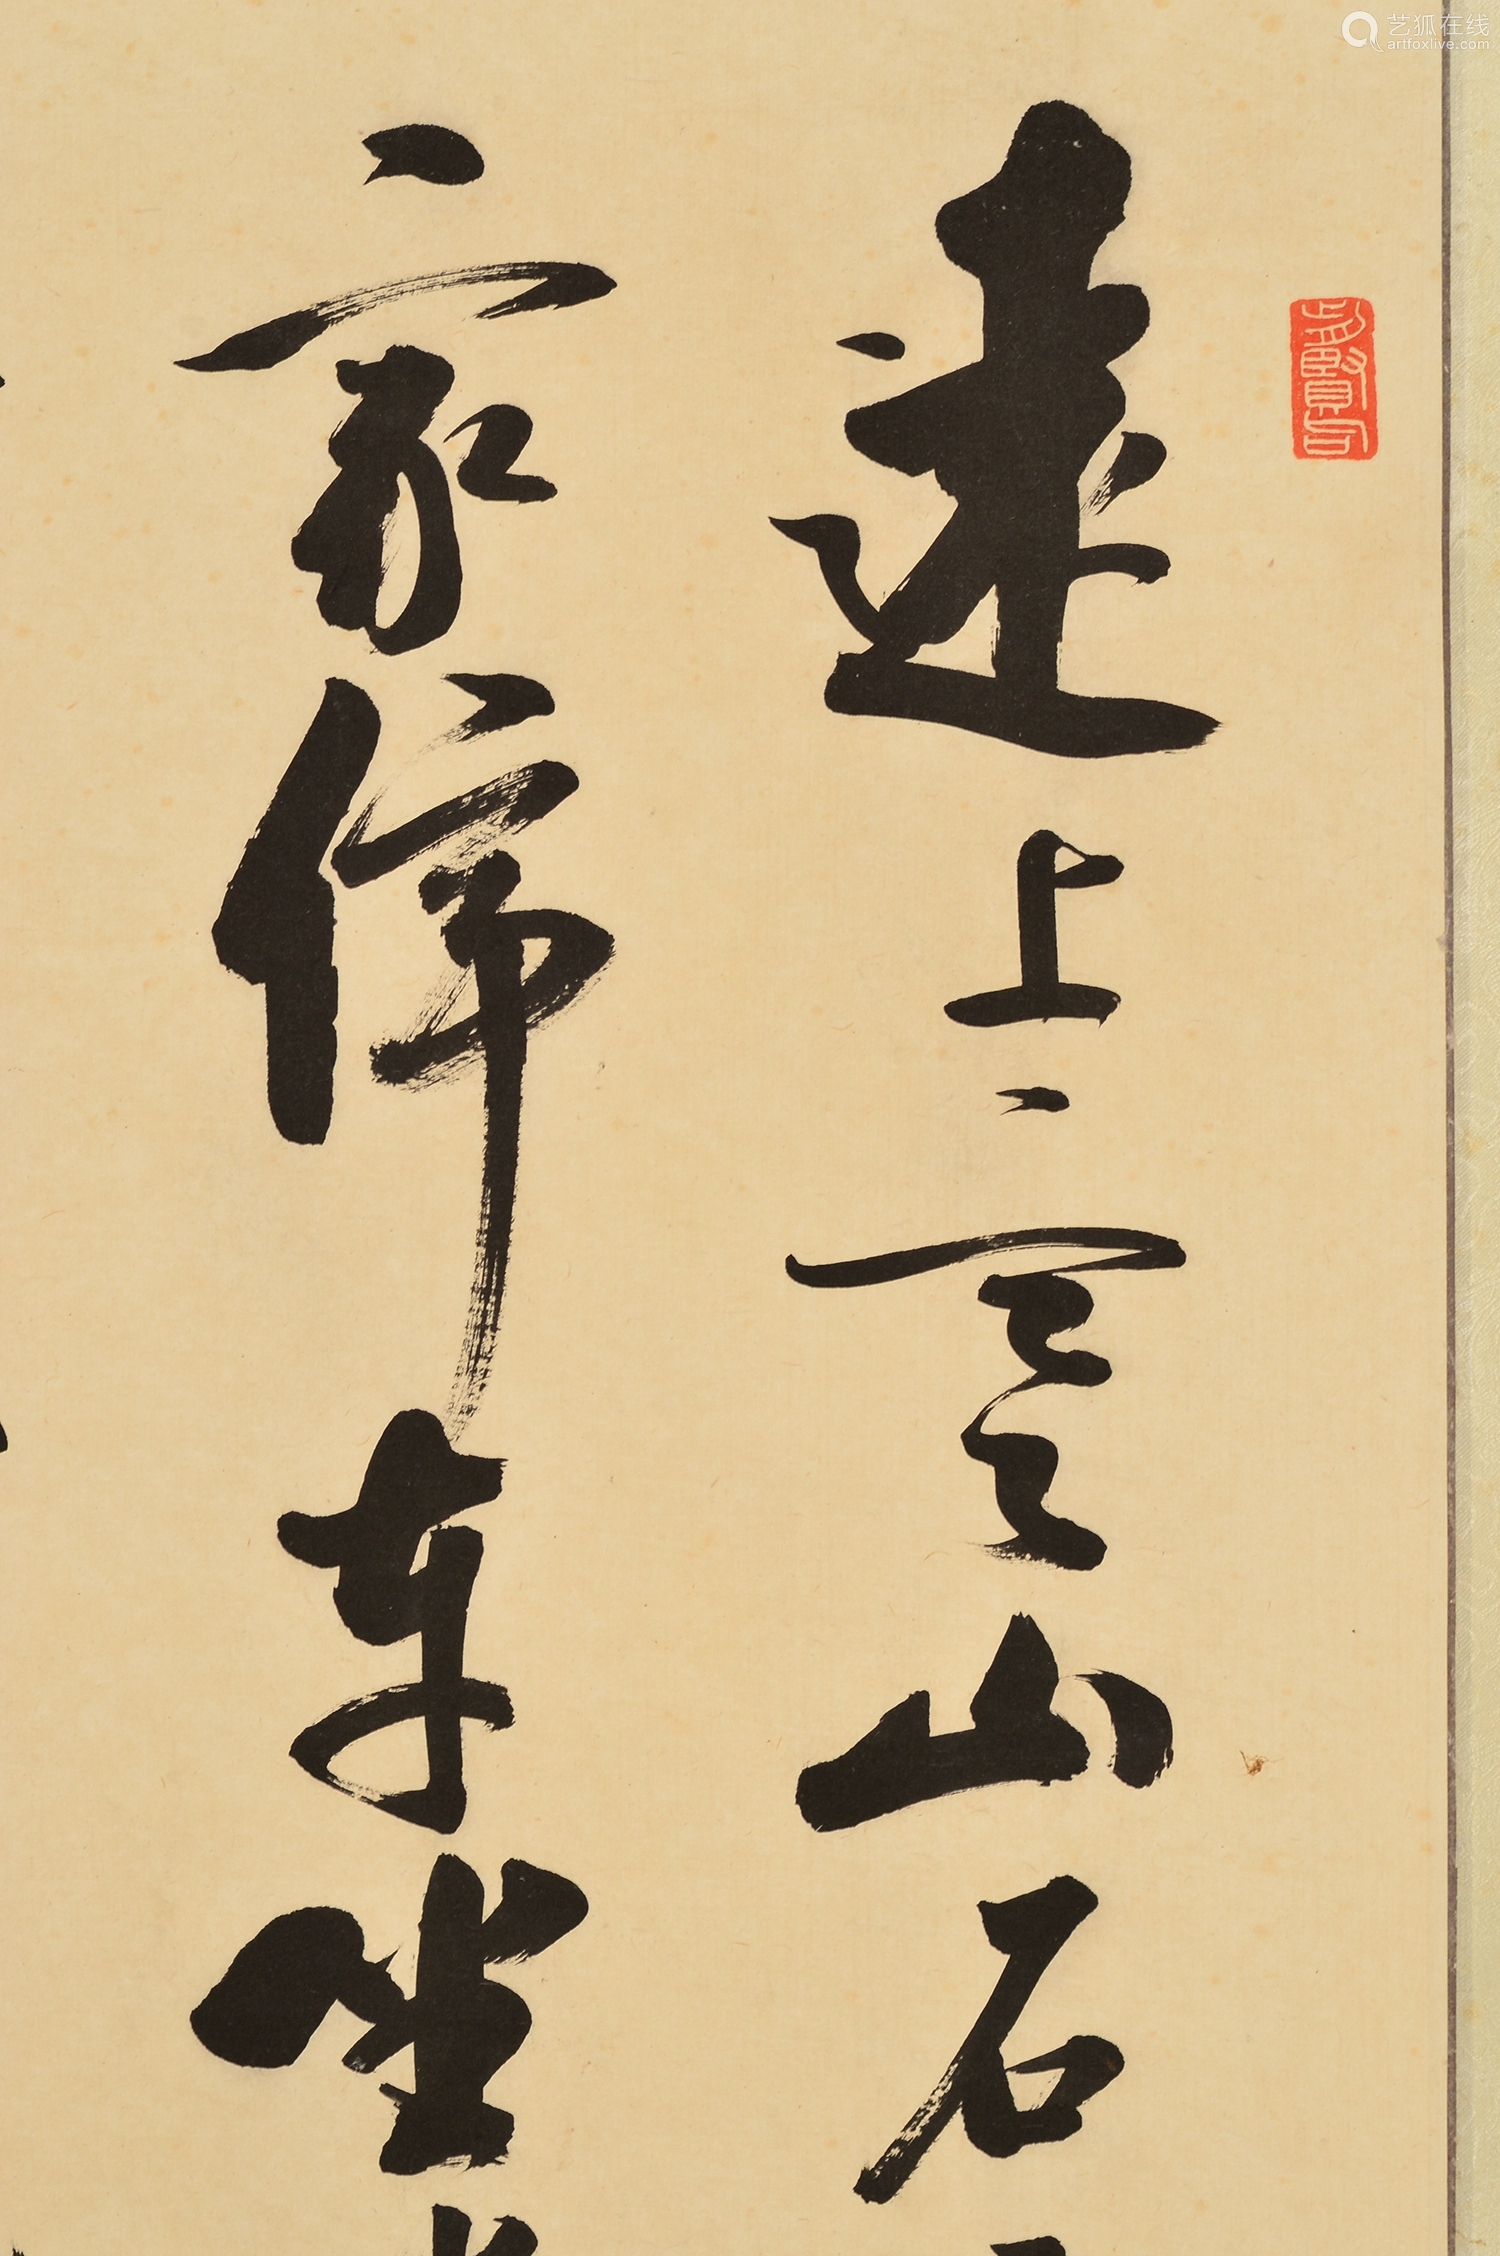 遠上寒山石
家停車坐
艺狐在线
artfoxlive.com